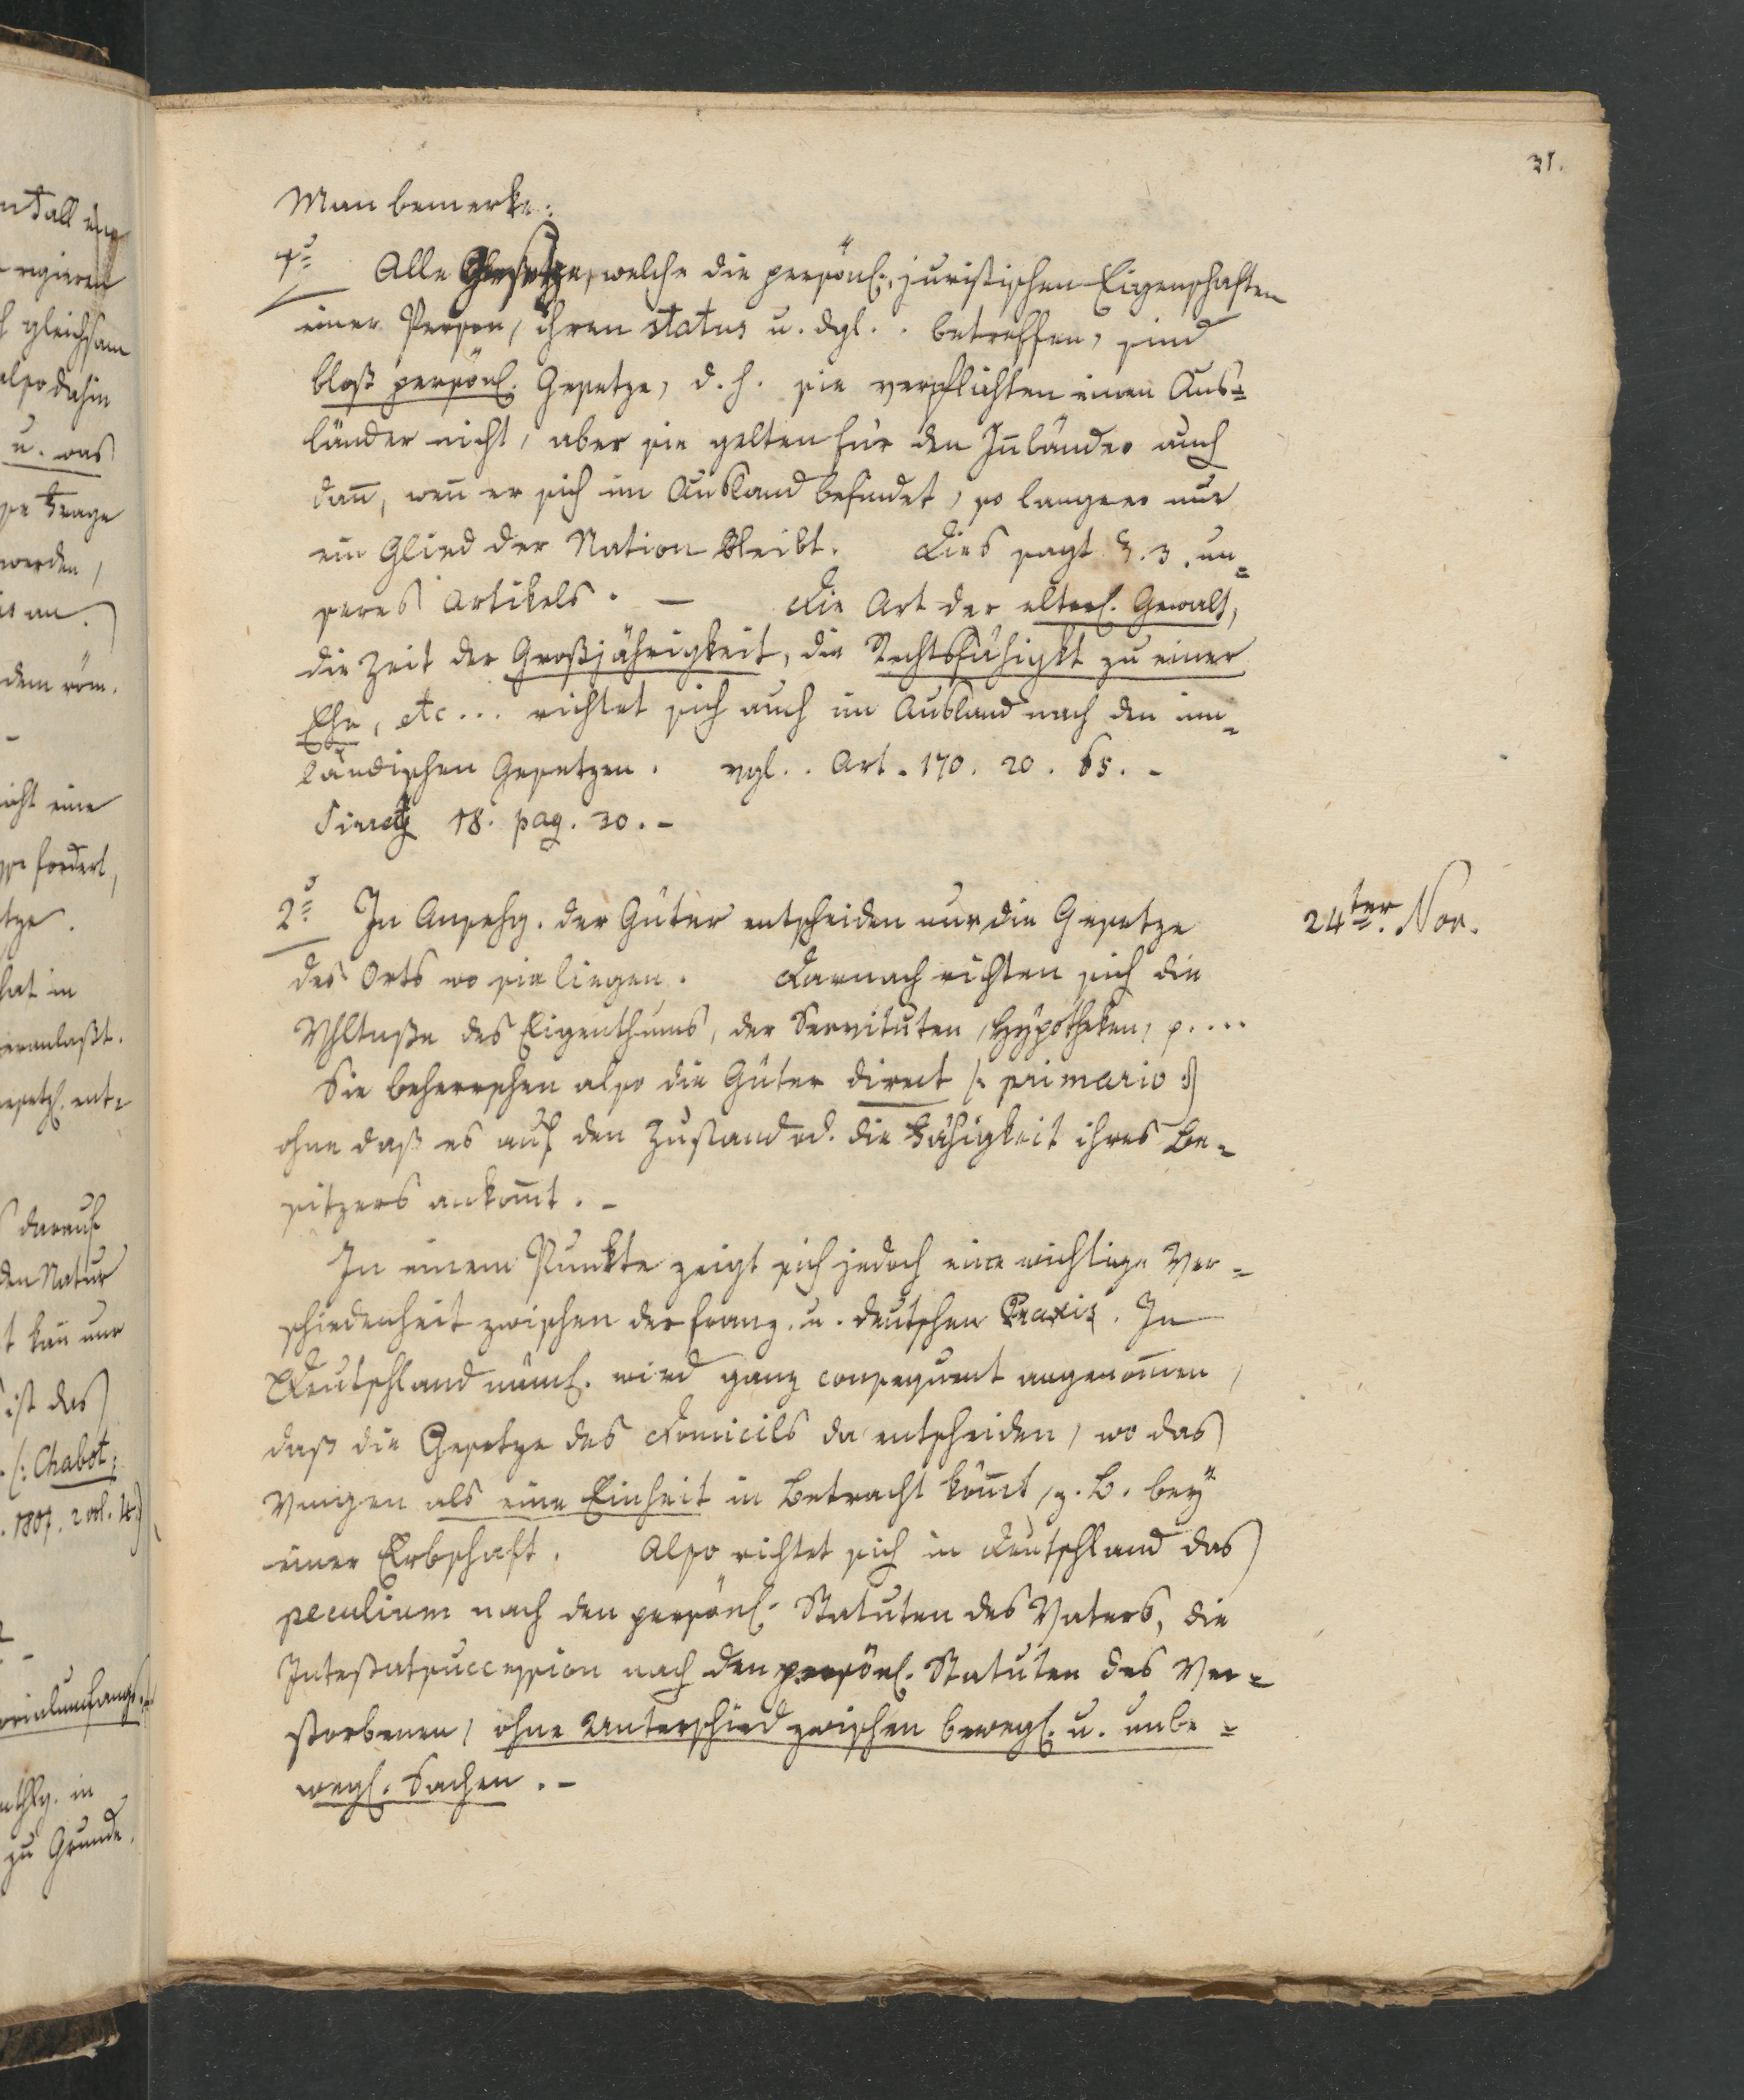 31.
Man bemerke:
1.) Alle Gesetze, welche die persönl. juristischen Eigenschaften
einer Person, ihren status u. dgl. . betreffen, sind
bloß persönl. Gesetze, d. h. sie verpflichten einen Aus=
länder nicht, aber sie gelten für den Inländer auch
dañ, weñ er sich im Ausland befindet, so lange er nur
ein Glied der Nation bleibt. Dies sagt §. 3. un=
seres Artikels. — Die Art der elterl. Gewalt,
die Zeit der Großjährigkeit, die Rechtsfähigkt zu einer
Ehe, etc... richtet sich auch im Ausland nach den inn=
ländischen Gesetzen. vgl. . Art. 170. 20. 65. -
18. pag. 30. -
2.) In Ansehg. der Güter entscheiden nur die Gesetze
des Orts wo sie liegen. Darnach richten sich die
Vhltniße des Eigenthums, der Servituten, Hypotheken, p....
Sie beherrschen also die Güter direct /: primario :/
ohne daß es auf den Zustand od. die Fähigkeit ihres Be=
sitzers ankom̃t. -
In einem Punkte zeigt sich jedoch eine wichtige Ver=
schiedenheit zwischen der franz. u. deutschen Praxis. In
Deutschland näml. wird ganz consequent angenom̃en,
daß die Gesetze des Domicils da entscheiden, wo das
Vmögen als eine Einheit in Betracht köm̃t, z. B. bey
einer Erbschaft. Also richtet sich in Deutschland das
peculium nach den persönl. Statuten des Vaters, die
Intestatsuccession nach den persönl. Statuten des Ver=
storbenen, ohne Unterschied zwischen bewegl. u. unbe=
wegl. Sachen. -
24ter. Nov.